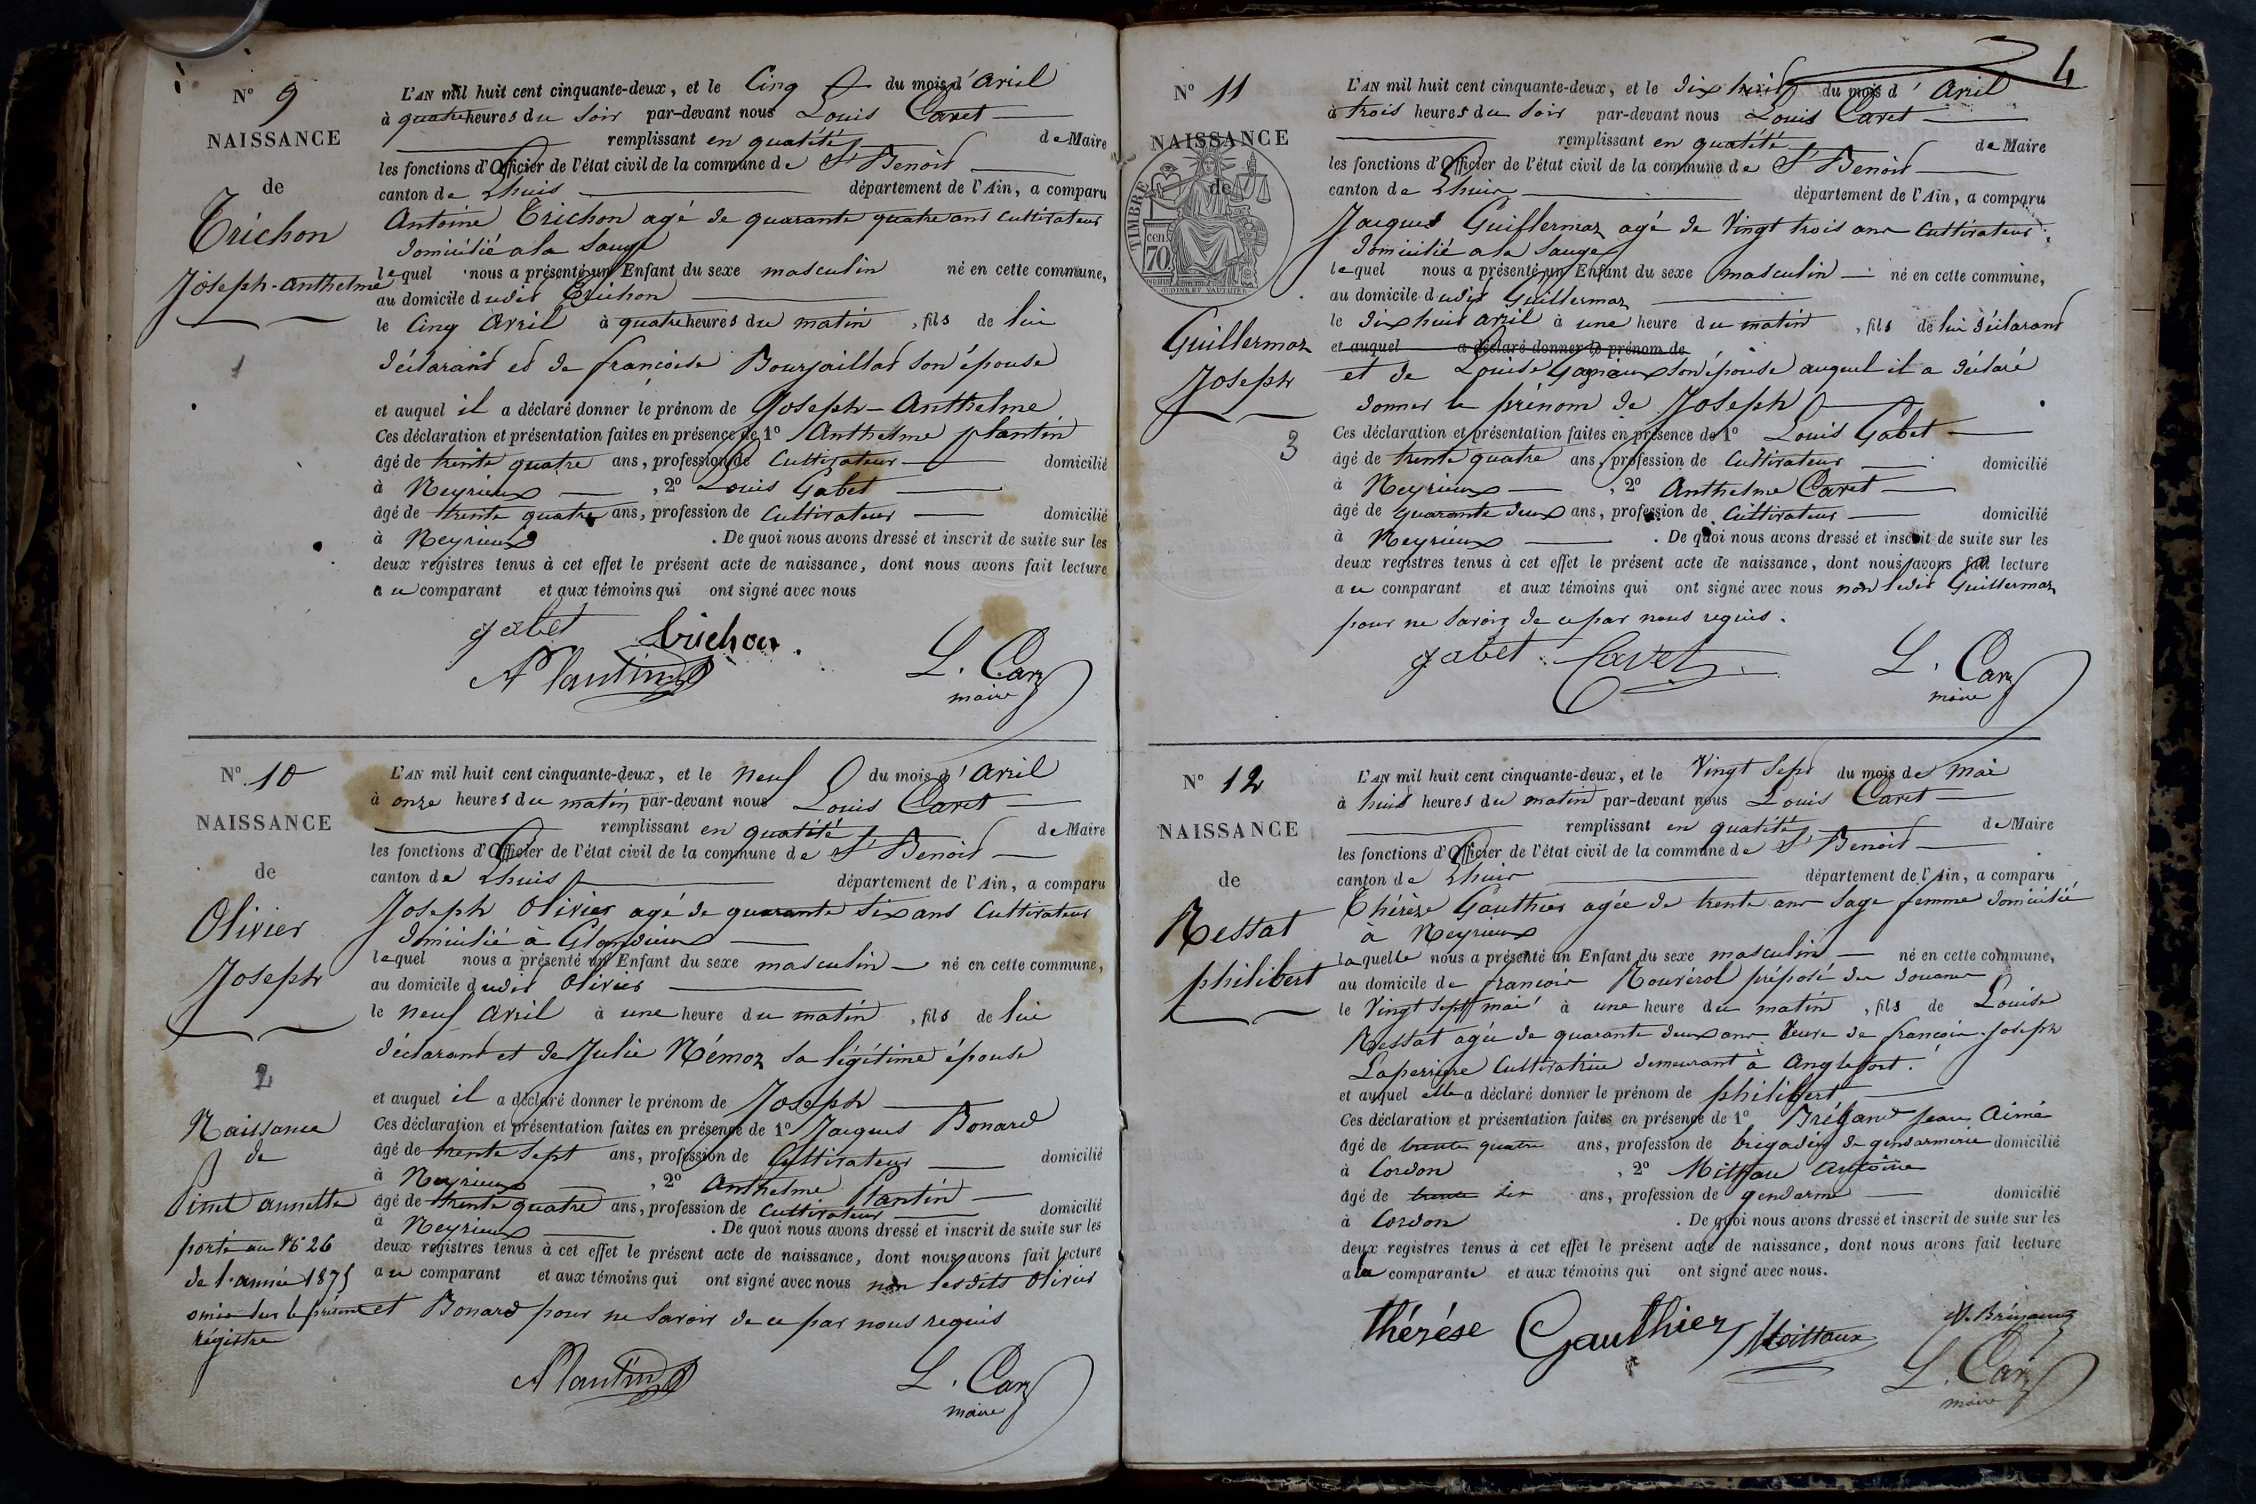 N° 9
NAISSANCE
de
Trichon
Joseph-Anthelme
1
L'AN mil huit cent cinquante-deux, et le Cinq du mois d'Avril
à quatre heures du Soir par-devant nous Louis Caret
remplissant en qualité de Maire
les fonctions d'Officier de l'état civil de la commune de St Benoit
canton de Lhuis département de l'Ain, a comparu
Antoine Trichon agé de quarante quatre ans Cultivateur
domicilié a la Sauge
lequel nous a présenté un Enfant du sexe masculin né en cette commune,
au domicile dudit Trichon
le Cinq Avril à quatre heures du matin, fils de lui
déclarant et de françoise Bourjaillat son épouse
et auquel il a déclaré donner le prénom de Joseph-Anthelme
Ces déclaration et présentation faites en présence de 1° Anthelme Plantin
âgé de trente quatre ans, profession de Cultivateur domicilié
à Neyrieux, 2° Louis Gabet
âgé de trente quatre ans, profession de Cultivateur domicilié
à Neyrieux. De quoi nous avons dressé et inscrit de suite sur les
deux registres tenus à cet effet le présent acte de naissance, dont nous avons fait lecture
au comparant et aux témoins qui ont signé avec nous
gabet trichon.
A Plantin L. Car
maire
N° 10
NAISSANCE
de
Olivier
Joseph
2
Naissance
de
Pinet annette
porté au N° 26
de l'année 1875
omis sur le présent
régistre
L'AN mil huit cent cinquante-deux, et le neuf du mois d'Avril
à onze heures du matin par-devant nous Louis Caret
remplissant en qualité de Maire
les fonctions d'Officier de l'état civil de la commune de St Benoit
canton de Lhuis département de l'Ain, a comparu
Joseph Olivier agé de quarante six ans Cultivateur
domicilié à Glandieux
lequel nous a présenté un Enfant du sexe masculin né en cette commune,
au domicile dudit Olivier
le neuf Avril à une heure du matin, fils de lui
déclarant et de Julie Némoz sa légitime épouse
et auquel il a déclaré donner le prénom de Joseph
Ces déclaration et présentation faites en présence de 1° Jacques Bonard
âgé de trente Sept ans, profession de Cultivateur domicilié
à Neyrieux, 2° Anthelme Plantin
âgé de trente quatre ans, profession de Cultivateur domicilié
à Neyrieux. De quoi nous avons dressé et inscrit de suite sur les
deux registres tenus à cet effet le présent acte de naissance, dont nous avons fait lecture
au comparant et aux témoins qui ont signé avec nous non lesdits Olivier
et Bonard pour ne Savoir de ce par nous requis
A Plantin L. Car
maire
4
N° 11
NAISSANCE
de
TIMBRE
70 cen.
Guillermoz
Joseph
3
L'AN mil huit cent cinquante-deux, et le dix huit du mois d'Avril
à trois heures du Soir par-devant nous Louis Caret
remplissant en qualité de Maire
les fonctions d'Officier de l'état civil de la commune de St Benoit
canton de Lhuis département de l'Ain, a comparu
Jacques Guillermoz agé de Vingt trois ans Cultivateur
domicilié a la Sauge
lequel nous a présenté un Enfant du sexe masculin né en cette commune,
au domicile dudit Guillermoz
le dix huit avril à une heure du matin, fils de lui déclarant
et auquel a déclaré donner le prénom de
et de Louise Gagnieux son épouse auquel il a déclaré
donner le prénom de Joseph
Ces déclaration et présentation faites en présence de 1° Louis Gabet
âgé de trente quatre ans, profession de Cultivateur domicilié
à Neyrieux, 2° Anthelme Caret
âgé de Quarante deux ans, profession de Cultivateur domicilié
à Neyrieux. De quoi nous avons dressé et inscrit de suite sur les
deux registres tenus à cet effet le présent acte de naissance, dont nous avons fait lecture
au comparant et aux témoins qui ont signé avec nous non ledit Guillermoz
pour ne Savoir de ce par nous requis.
gabet Caret L. Car
maire
N° 12
NAISSANCE
de
Nessat
philibert
L'AN mil huit cent cinquante-deux, et le Vingt Sept du mois de Mai
à huit heures du matin par-devant nous Louis Caret
remplissant en qualité de Maire
les fonctions d'Officier de l'état civil de la commune de St Benoit
canton de Lhuis département de l'Ain, a comparu
Thérèze Gauthier agée de trente ans Sage femme domiciliée
à Neyrieux
laquelle nous a présenté un Enfant du sexe masculin né en cette commune,
au domicile de françois préposé des douanes
le Vingt Sept mai à une heure du matin, fils de Louise
Nessat agée de quarante deux ans Veuve de françois Joseph
Laperrière Cultivatrice demeurant à Anglefort.
et auquel elle a déclaré donner le prénom de philibert
Ces déclaration et présentation faites en présence de 1° Brégand Jean Aimé
âgé de trente quatre ans, profession de brigadier de gendarmerie domicilié
à Cordon, 2° Antoine
âgé de trente six ans, profession de gendarme domicilié
à Cordon. De quoi nous avons dressé et inscrit de suite sur les
deux registres tenus à cet effet le présent acte de naissance, dont nous avons fait lecture
a la comparante et aux témoins qui ont signé avec nous.
thérése Gauthier Moittaux
L. Car
maire